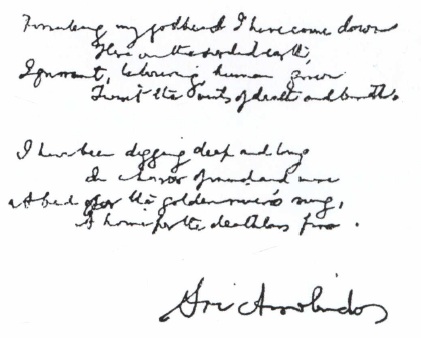 my godhead I have come down
Here on the sordid earth,
Ignorant, labouring, human grown
Twixt the gates of death and birth.
I have been digging deep and long
In a horror of mud and mire
A bed for the golden river's song,
A home for the deathless fire.
Sri Aurobindo